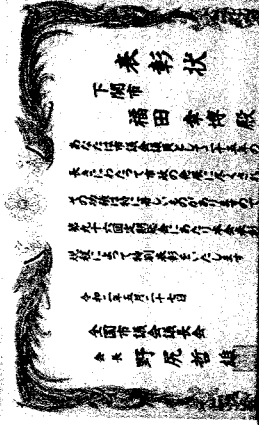 表彰状
下関市
福田幸博殿
あなたは市議会議員として二十五年の
長きにわたって市政の発展に尽くされ
その功績は特に著しいものがありますので
第九十六回定期総会にあたり本会表彰
規程によって特別表彰をいたします
令和二年五月二十七日
全国市議会議長会
会長 野尻哲雄